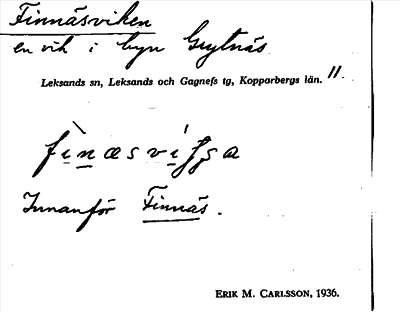 Finnäsviken
en vik i byn Grytnäs
Leksands sn, Leksands och Gagnefs tg, Kopparbergs län. 11.
Innanför Finnäs.
ERIK M. CARLSSON, 1936.